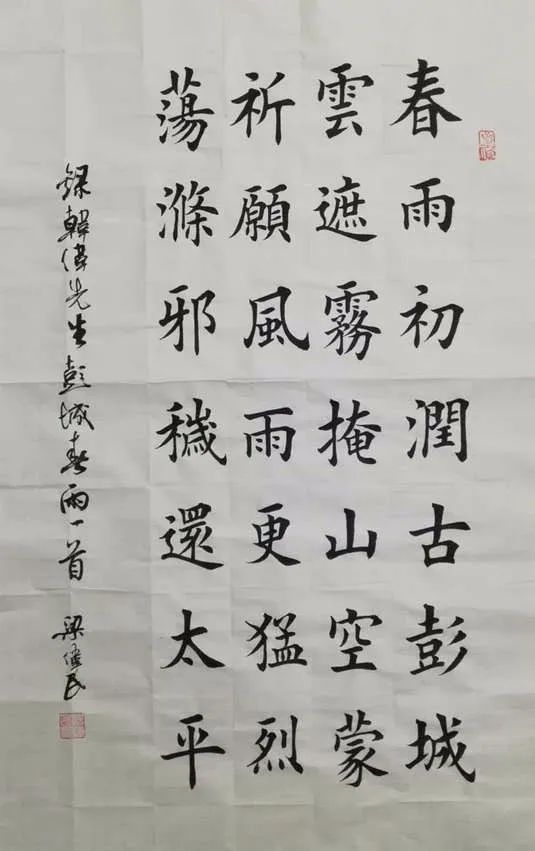 春雨初潤古彭城
雲遮霧掩山空蒙
祈願風雨更猛烈
蕩滌邪穢還太平
錄韓偉先生彭城春雨一首
梁偉民